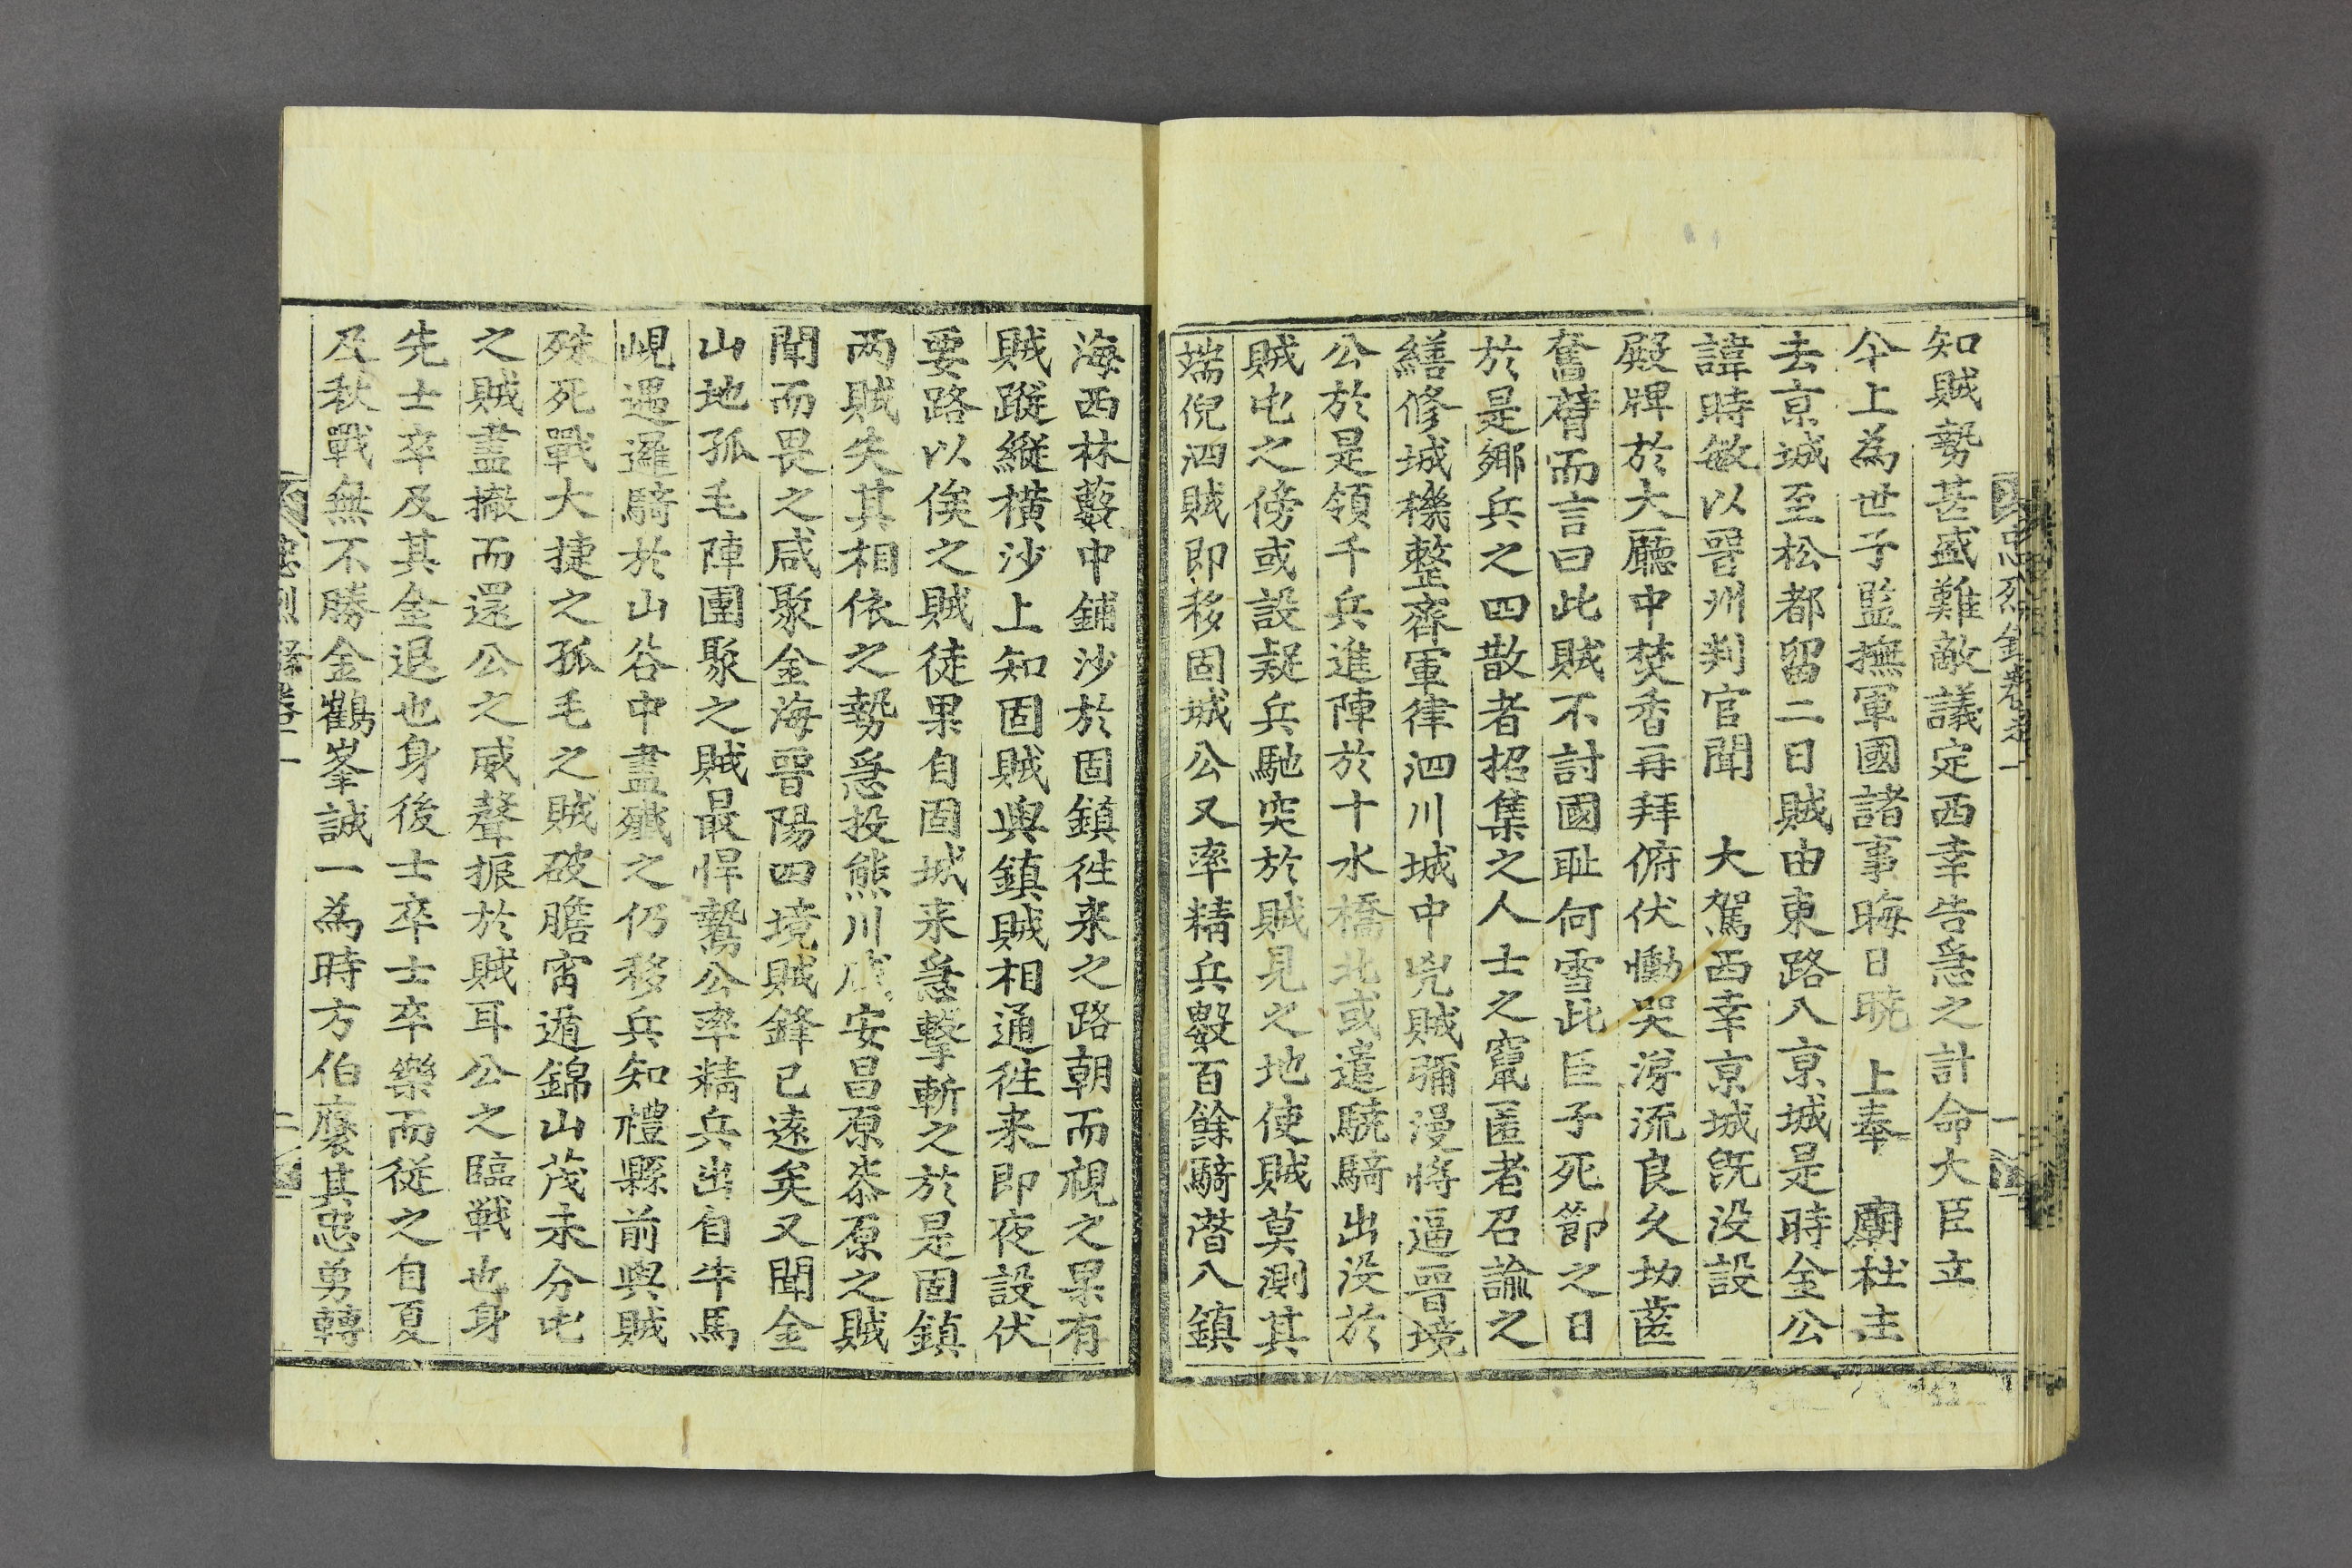 忠烈錄卷之一
知賊勢甚盛難敵議定西幸告急之計命大臣立
今上為世子監撫軍國諸事晦日曉 上奉 廟社主
去京城至松都留二日賊由東路入京城是時金公
諱時敏以晉州判官聞 大駕西幸京城旣没設
殿牌於大廳中焚香再拜俯伏慟哭滂流良久切齒
奮臂而言曰此賊不討國耻何雪此臣子死節之日
於是鄉兵之四散者招集之人士之竄匿者召諭之
繕修城機整齊軍律泗川城中兇賊彌漫將逼晉境
公於是領千兵進陣於十水橋北或遣驍騎出没於
賊屯之傍或設疑兵馳突於賊見之地使賊莫測其
端倪泗賊即移固城公又率精兵數百餘騎潛入鎮
海西林藪中鋪沙於固鎮徃来之路朝而視之果有
賊蹤縱橫沙上知固賊與鎮賊相通徃来即夜設伏
要路以俟之賊徒果自固城来急擊斬之於是固鎮
两賊失其相依之勢急投熊川 安昌原

泰原之賊
聞而畏之咸聚金海晉陽四境賊鋒已遠矣又聞金
山地孤毛陣團聚之賊最悍鷙公率精兵出自牛馬
峴遇邏騎於山谷中盡殲之仍移兵知禮縣前與賊
殊死戰大捷之孤毛之賊破膽宵遁錦山茂朱分屯
之賊盡撤而還公之威聲振於賊耳公之臨戰也身
先士卒及其金退也身後士卒士卒樂而從之自夏
及秋戰無不勝金鶴峯誠一為時方伯褒其忠勇轉
忠烈錄卷之一